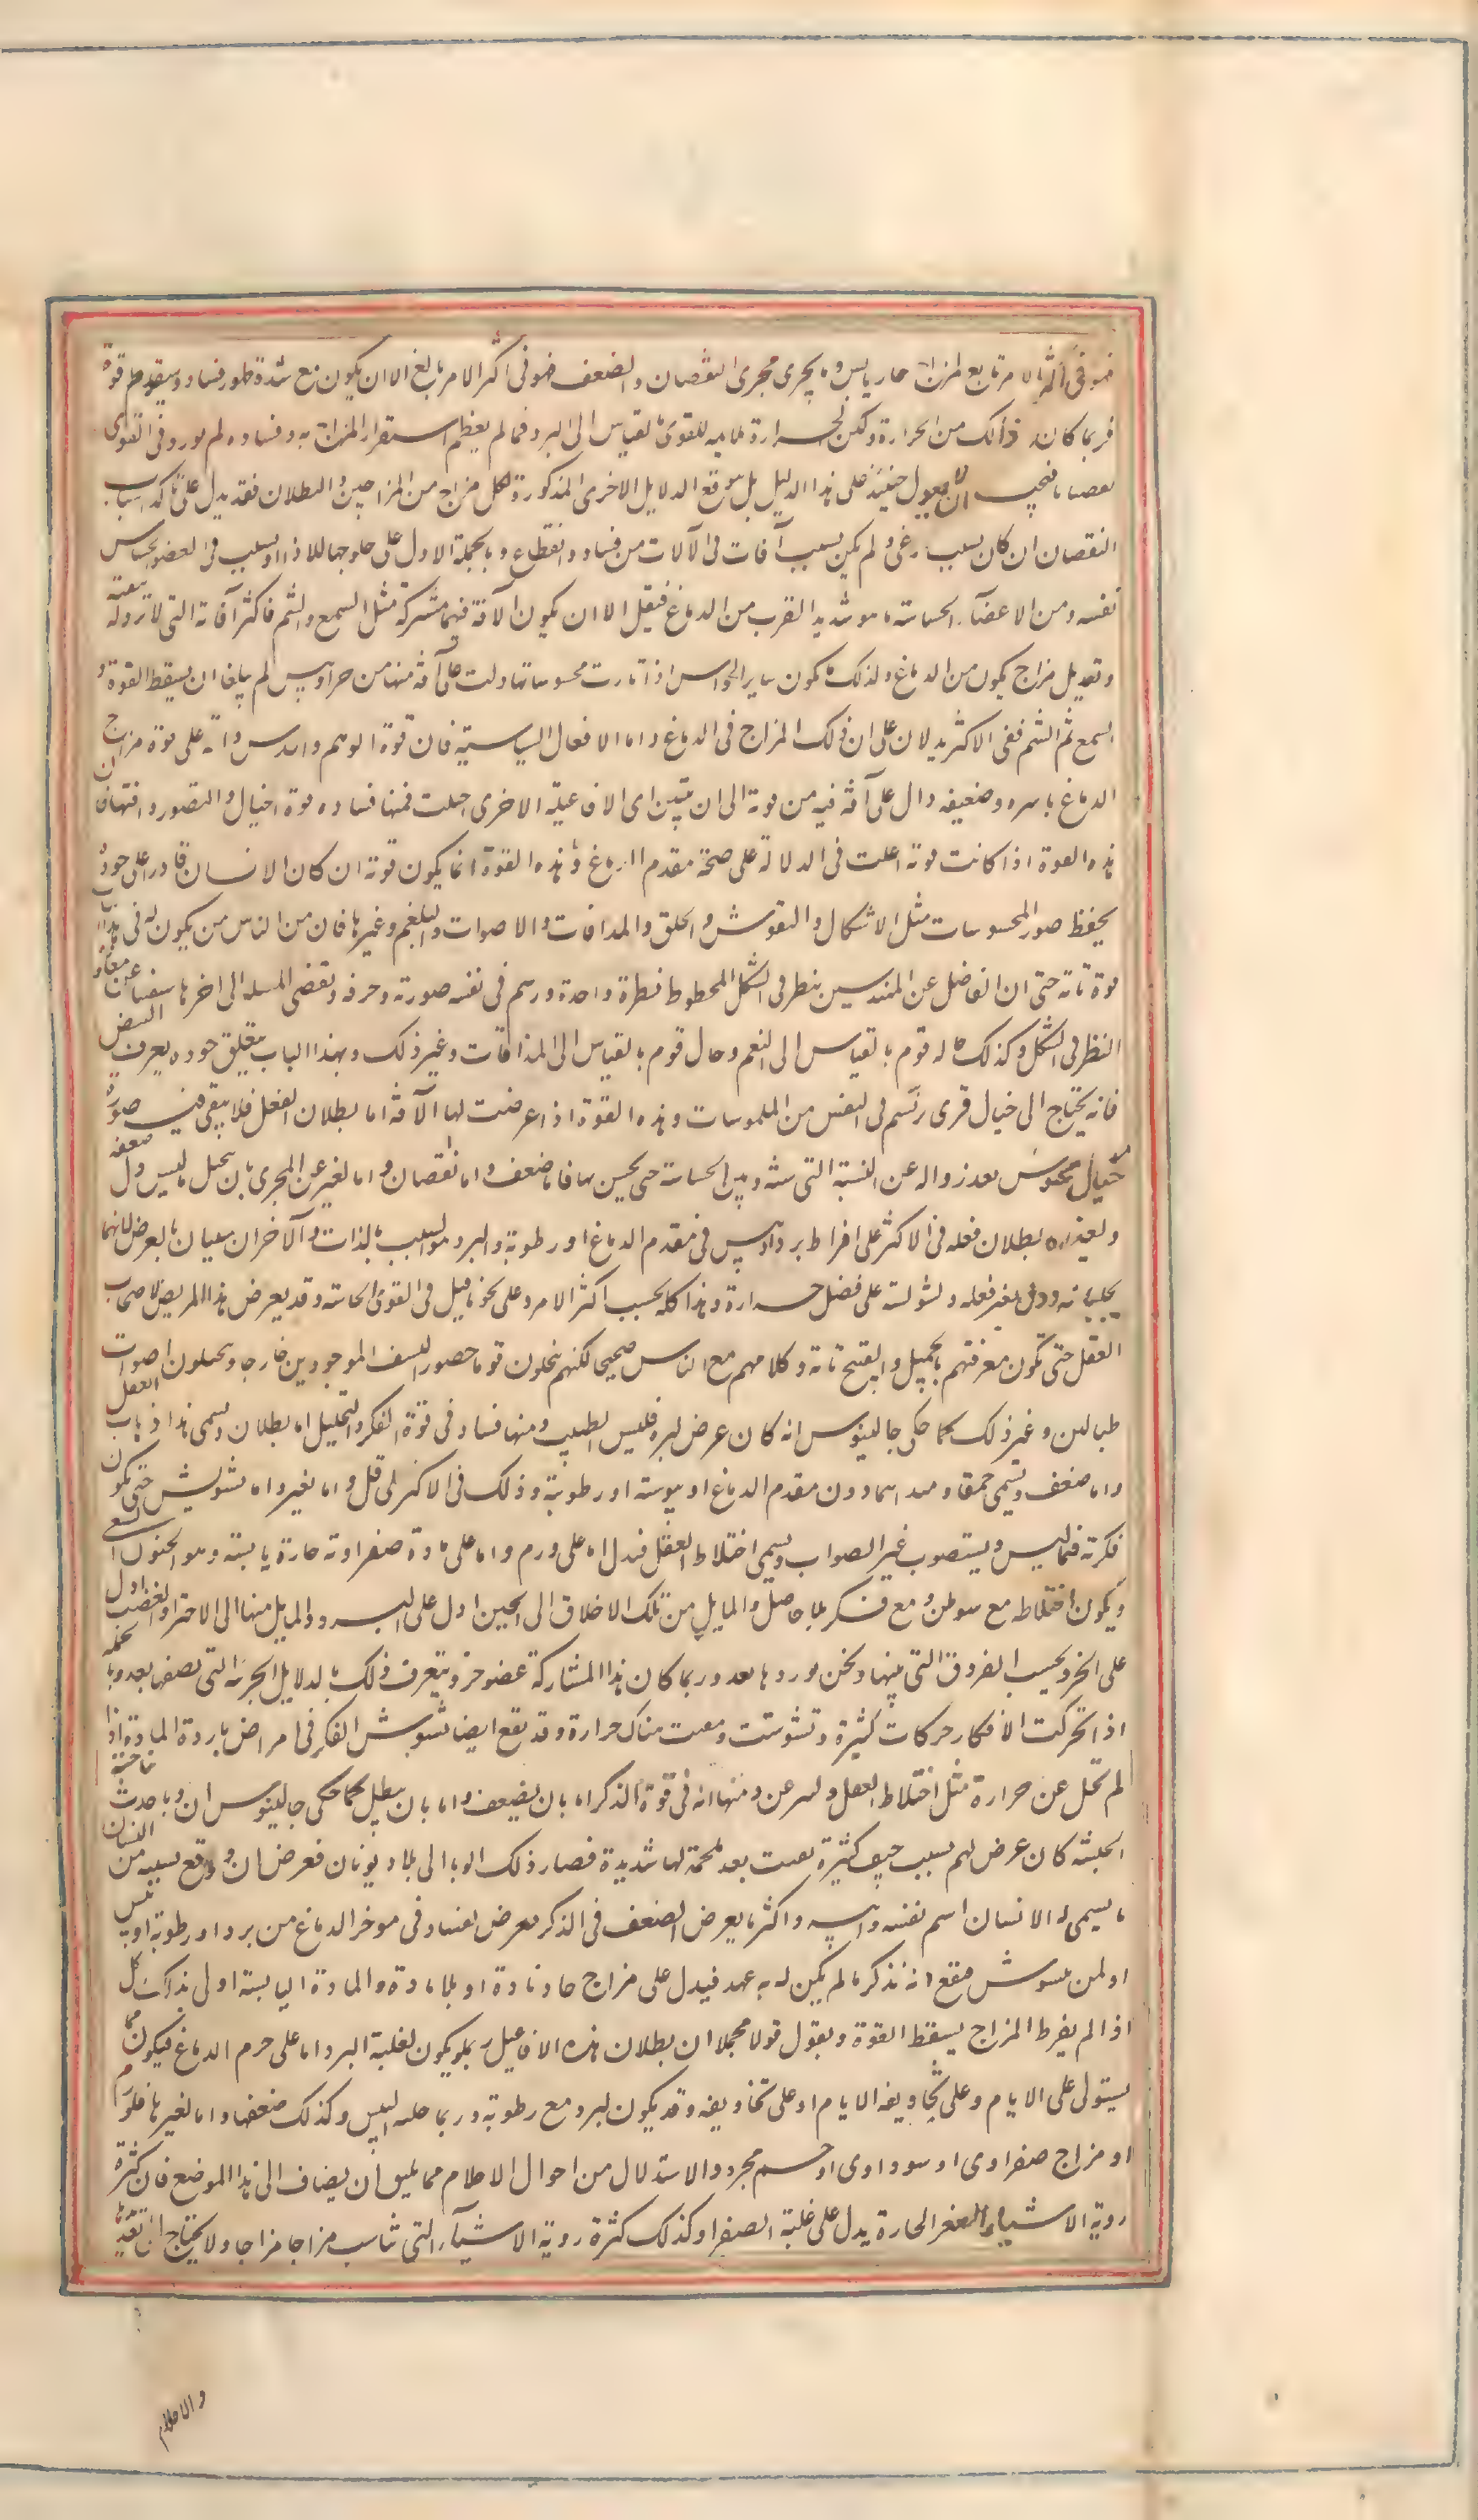 فهو فى اكثر الامر تابع لمزاج حار يابس وما يجرى مجرى النقصان والضعف فهو فى اكثر الامر تابع الا ان يكون مع شدة ظهور فساد وسقوط قوة
فربما كان ذلك من الحرارة ولكن الحرارة ملايمة للقوى بالقياس الى البرد فما لم يعظم استقرار المزاج به وفساده لم يورد فى القوى
نقصانا فيجب ان لا يعول حينئذ على هذا الدليل بل توقع الدلايل الاخرى المذكورة لكل مزاج من المزاجين والبطلان فقد يدل على تاكد اسباب
النقصان ان كان بسبب دماغى ولم يكن بسبب آفات فى الآلات من فساد وانقطاع وبالجملة الاول على خلوجها للاذا او بسبب فى العضو الحاس
نفسه ومن الاعضآء الحساسة ما هو شديد القرب من الدماغ فيقل الا ان يكون الآفة فيهما مشتركة مثل السمع والشم فاكثر آفاته التى لا تزول بتنقية
وتعديل مزاج يكون من الدماغ ولذلك ما يكون ساير الحواس اذا تاذت محسوساتها دلت على آفة فيها من حر او يبس لم يبلغا ان يسقط القوة و
السمع ثم الشم ففى الاكثر يدلان على ان ذلك المزاج فى الدماغ واما الافعال السياسية فان قوة الوهم والحدس دالة على قوة مزاج
الدماغ باسره وضعيفه دال على آفة فيه من قوة الى ان يتبين اى الافاعيل الاخرى اختلت فمنها فساده قوة الخيال والتصور وافتهافان
هذه القوة اذا كانت قوية اعلت فى الدلالة على صحة مقدم الدماغ وهذه القوة انما يكون قوية ان كان الانسان قادرا على جودة
يحفظ صور المحسوسات مثل الاشكال والنقوش والحلق والمذاقات والاصوات والنغم وغيرها فان من الناس من يكون له فى هذا الباب
قوة تامة حتى ان الفاضل عن المهندسين ينظر فى الشكل المخطوط نظرة واحدة ورسم فى نفسه صورته وحرفه ويقضى المسلة الى اخرها مستغنيا عن معاودة
النظر فى الشكل وكذلك حاله قوم بالقياس الى النغم وحال قوم بالقياس الى المذاقات وغير ذلك وبهذا الباب يتعلق جودة يعرف النبض
فانه يحتاج الى خيال قوى رتسم فى النفس من الملموسات وهذه القوة اذا عرضت لها الآفة اما بطلان الفعل فلا يبقى فيه صورة
خيال محسوس بعد زواله عن النسبة التى بينه وبين الحساسة حتى يحسن بها فاما ضعف واما نقصان واما تغير عن المجرى بان يخيل ما ليس ول ضعفه
وتعذره بطلان فعله فى الاكثر على افراط برد او يبس فى مقدم الدماغ او رطوبة والبرد هو السبب بالذات والآخران سببان بالعرض لانهما
يجلبانه ودل تغير فعله وتشوشه على فضل حرارة وهذا كله بحسب اكثر الامر وعلى نحو ما قيل فى القوى الحاسة وقد يعرض هذا المرض لاصحاب
العقل حتى تكون معرفتهم بالجميل والقبيح تامة وكلامهم مع الناس صحيحا لكنهم يتخيلون قوما حضورا ليسوا بموجودين خارجا ويخيلون اصوات
طبالين وغير ذلك كما حكى جالينوس انه كان عرض لبروفليس الطبيب ومنها فساد فى قوة الفكر والتخيل اما بطلان ويسمى هذا ذهاب العقل
واما ضعف ويسمى حمقا ومبداهما دون مقدم الدماغ او يبوسته او رطوبته وذلك فى الاكثر على ما قيل واما تغير واما تشويش حتى يكون
فكرته فيما ليس ويستصوب غير الصواب ويسمى اختلاط العقل فيدل اما على ورم واما على مادة صفراوية حارة يابسة وهو الجنون السبعى
ويكون اختلاطه مع سوء ظن ومع فكر بلا حاصل والمايل من تلك الاخلاق الى الجبن ادل على البرد والمايل منها الى الاجترا والغضب ادل
على الحر وبحسب الفروق التى بينها ونحن نوردها بعد وربما كان هذا المشاركة عضو اخر ويتعرف ذلك بالدلايل الجزئية التى نصفها بعد وبالجملة
اذا تحركت الافكار حركات كثيرة وتشوشت وتفننت فهناك حرارة وقد يقع ايضا تشويش الفكر فى امراض باردة المادة اذا
لم تخل عن حرارة مثل اختلاط العقل وليثرغس ومنها آفة فى قوة الذكر اما بان يضعف واما بان يبطل كما حكى جالينوس ان وبا حدث بناحية
الحبشة كان عرض لهم بسبب جيف كثيرة بقيت بعد ملحمة لها شديدة فصار ذلك الوبا الى بلاد يونان فعرض ان وقع بسببه من النسيان
ما يسمى له الانسان اسم نفسه وابيه واكثر ما يعرض الضعف فى الذكر يعرض لفساد فى موخر الدماغ من برد او رطوبة او يبس
او لمن يتشوش فيقع انه يذكر ما لم يكن له به عهد فيدل على مزاج حار مادة او بلا مادة والمادة اليابسة اولى بذلك كل
اذا لم يفرط المزاج يسقط القوة ونقول قولا مجملا ان بطلان هذه الافاعيل ربما يكون لغلبة البرد اما على جرم الدماغ فيكون مما
يستولى على الايام وعلى تجاويفه الايام او على تجاويفه وقد يكون لبرد مع رطوبة وربما جلبه اليبس وكذلك ضعفها واما تغيرها فلورم
او مزاج صفراوى او سوداوى او حر مجرد والاستدلال من احوال الاحلام مما يليق ان يضاف الى هذا الموضع فان كثرة
روية الاشياء الصفر الحارة يدل على غلبة الصفرا وكذلك كثرة روية الاشيآء التى تناسب مزاجا مزاجا ولا يحتاج ان نعددها
والاحلام